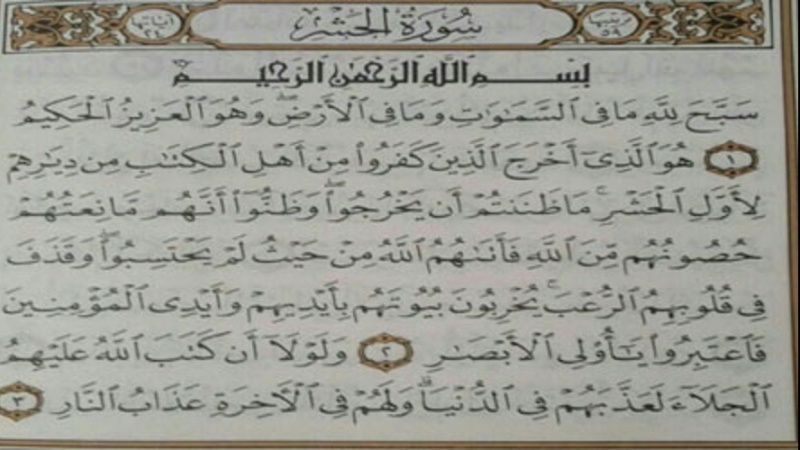 ترتيبها ٥٩ سُورَةُ الحَشْرِ آياتها ٢٤
بِسْمِ اللَّهِ الرَّحْمَٰنِ الرَّحِيمِ
سَبَّحَ لِلَّهِ مَا فِي السَّمَٰوَٰتِ وَمَا فِي الْأَرْضِۖ وَهُوَ الْعَزِيزُ الْحَكِيمُ
١ هُوَ الَّذِيٓ أَخْرَجَ الَّذِينَ كَفَرُوا۟ مِنْ أَهْلِ الْكِتَٰبِ مِن دِيَٰرِهِمْ
لِأَوَّلِ الْحَشْرِۚ مَا ظَنَنتُمْ أَن يَخْرُجُوا۟ۖ وَظَنُّوٓا۟ أَنَّهُم مَّانِعَتُهُمْ
حُصُونُهُم مِّنَ اللَّهِ فَأَتَىٰهُمُ اللَّهُ مِنْ حَيْثُ لَمْ يَحْتَسِبُوا۟ۖ وَقَذَفَ
فِي قُلُوبِهِمُ الرُّعْبَۚ يُخْرِبُونَ بُيُوتَهُم بِأَيْدِيهِمْ وَأَيْدِي الْمُؤْمِنِينَ
فَاعْتَبِرُوا۟ يَٰٓأُو۟لِي الْأَبْصَٰرِ ٢ وَلَوْلَآ أَن كَتَبَ اللَّهُ عَلَيْهِمُ
الْجَلَآءَ لَعَذَّبَهُمْ فِي الدُّنْيَاۖ وَلَهُمْ فِي الْءَاخِرَةِ عَذَابُ النَّارِ ٣